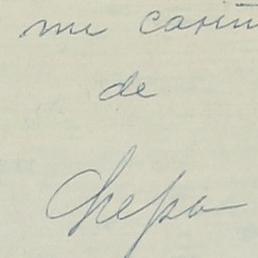 mi cariñ
de
Chepa